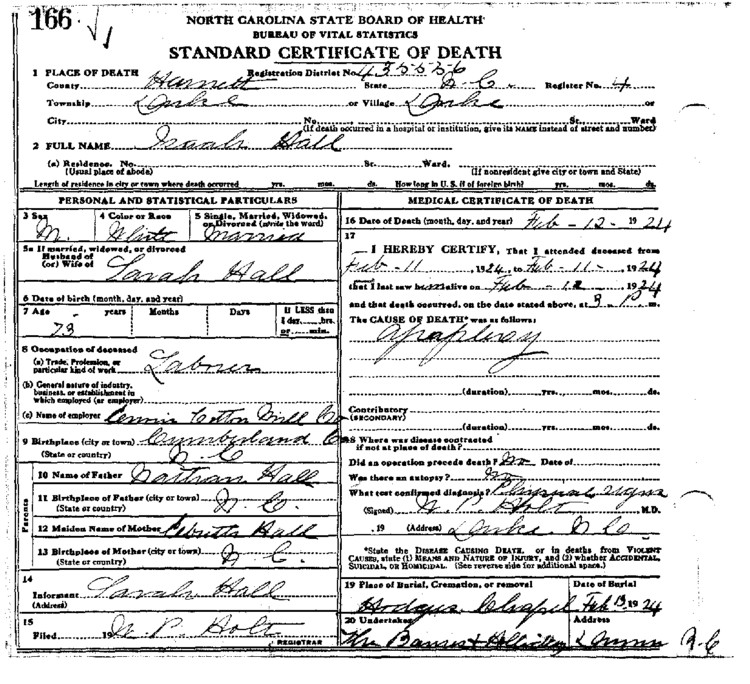 166
NORTH CAROLINA STATE BOARD OF HEALTH
BUREAU OF VITAL STATISTICS
STANDARD CERTIFICATE OF DEATH
1 PLACE OF DEATH Registration District No. 43-5556
County Harnett State N C. Register No. 4
Township Duke or Village Duke or
City No. St. Ward
(If death occurred in a hospital or institution, give its NAME instead of street and number)
2 FULL NAME Isaah Hall
(a) Residence. No. St. Ward.
(Usual place of abode) (If nonresident give city or town and State)
Length of residence in city or town where death occurred yrs. mos. ds. How long in U. S. if of foreign birth? yrs. mos. ds.
PERSONAL AND STATISTICAL PARTICULARS
3 Sex 4 Color or Race 5 Single, Married, Widowed, or Divorced (write the word)
M. White Married
5a If married, widowed, or divorced
Husband of
(or) Wife of Sarah Hall
6 Date of birth (month, day, and year)
7 Age years Months Days If LESS than
1 day, hrs.
or min.
73
8 Occupation of deceased
(a) Trade, Profession, or
particular kind of work Laborer
(b) General nature of industry,
business, or establishment in
which employed (or employer)
(c) Name of employer Cotton Mill Co
9 Birthplace (city or town) Cumberland C
(State or country) N C
Parents
10 Name of Father Nathan Hall
11 Birthplace of Father (city or town) N. C.
(State or country)
12 Maiden Name of Mother Hall
13 Birthplace of Mother (city or town) N C.
(State or country)
14
Informant Sarah Hall
(Address)
15
Filed 19 W P. Holt
REGISTRAR
MEDICAL CERTIFICATE OF DEATH
16 Date of Death (month, day, and year) Feb - 12 - 1924
17
I HEREBY CERTIFY, That I attended deceased from
Feb - 11, 1924, to Feb - 11 -, 1924
that I last saw him alive on Feb - 1924
and that death occurred, on the date stated above, at P. m.
The CAUSE OF DEATH* was as follows:
Apoplexy
(duration) yrs. mos. ds.
Contributory
(SECONDARY)
(duration) yrs. mos. ds.
18 Where was disease contracted
if not at place of death?
Did an operation precede death? No Date of
Was there an autopsy? No
What test confirmed diagnosis? Physical signs
(Signed) W. P. Holt M.D.
, 19 (Address) Duke N C
*State the DISEASE CAUSING DEATH, or in deaths from VIOLENT
CAUSES, state (1) MEANS AND NATURE OF INJURY, and (2) whether ACCIDENTAL,
SUICIDAL, OR HOMICIDAL. (See reverse side for additional space.)
19 Place of Burial, Cremation, or removal Date of Burial
Hodges Chapel Feb 13 1924
20 Undertaker Address
Dunn N. C